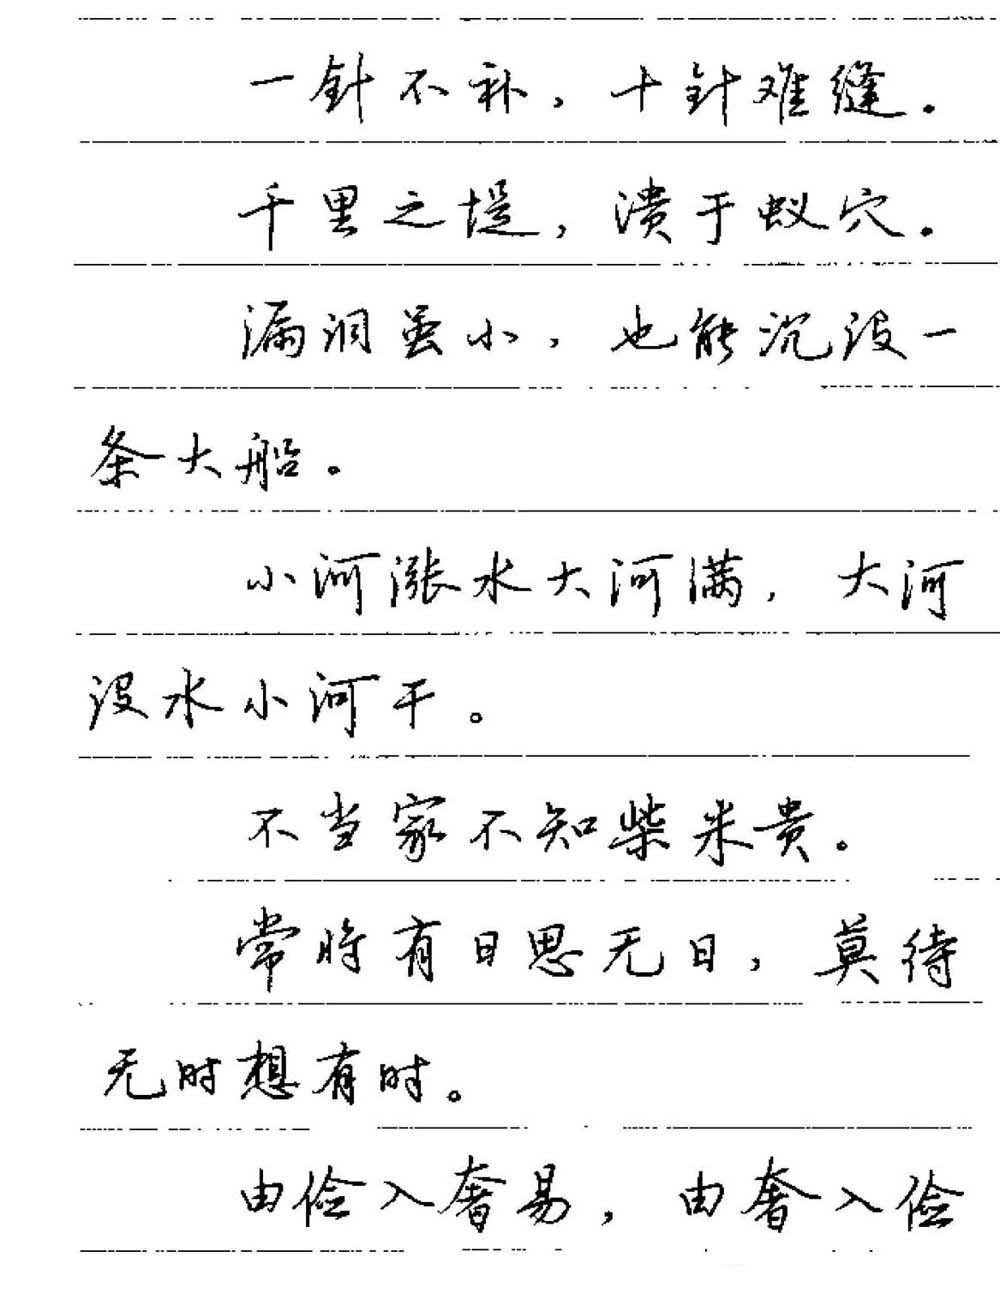 一针不补，十针难缝。
千里之堤，溃于蚁穴。
漏洞虽小，也能沉没一
条大船。
小河涨水大河满，大河
没水小河干。
不当家不知柴米贵。
常将有日思无日，莫待
无时想有时。
由俭入奢易，由奢入俭